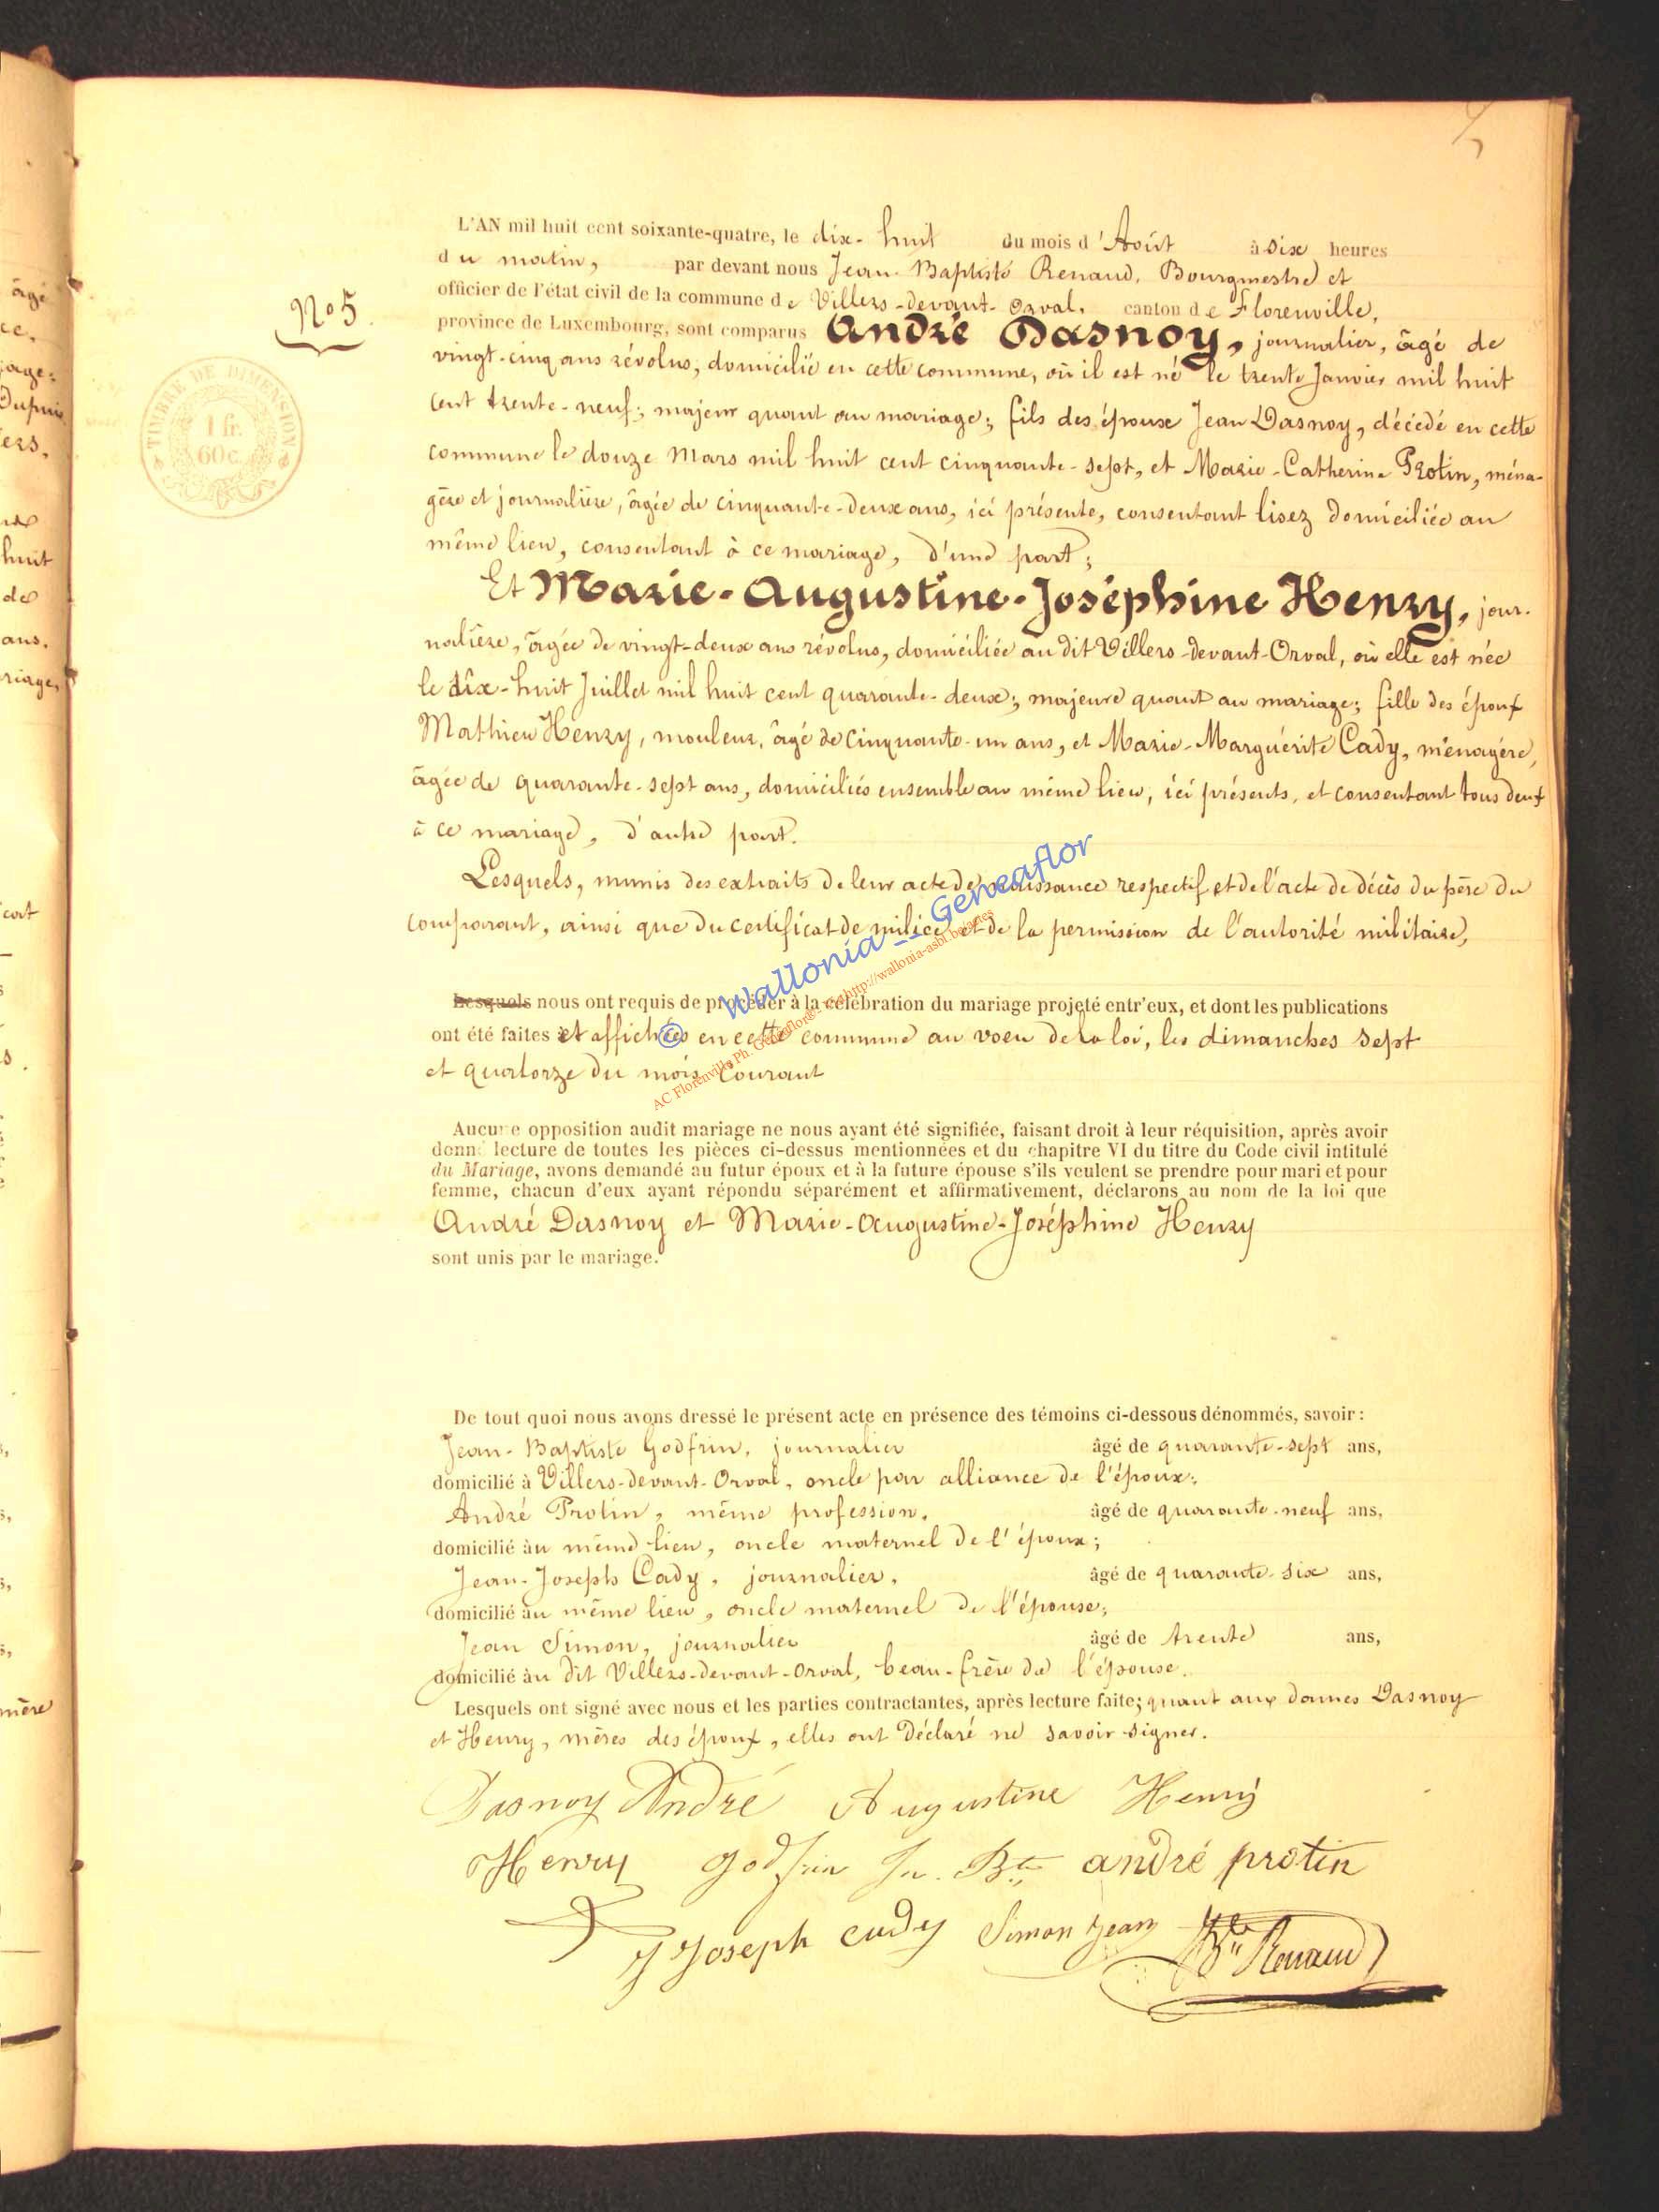 5
L'AN mil huit cent soixante-quatre, le dix-huit du mois d'Août à six heures
du matin, par devant nous Jean-Baptiste Renaud, Bourgmestre et
officier de l'état civil de la commune de Villers-devant-Orval, canton de Florenville,
No 5.
province de Luxembourg, sont comparus André Dasnoy, journalier, âgé de
vingt-cinq ans révolus, domicilié en cette commune, où il est né le trente Janvier mil huit
cent trente-neuf; majeur quant au mariage; fils des époux Jean Dasnoy, décédé en cette
commune le douze Mars mil huit cent cinquante-sept, et Marie-Catherine Protin, ména-
gère et journalière, âgée de cinquante-deux ans, ici présente, consentant lisez domiciliée au
même lieu, consentant à ce mariage, d'une part;
TIMBRE DE DIMENSION
1 fr.
60 c.
Et Marie-Augustine-Joséphine Henry, jour-
nalière, âgée de vingt-deux ans révolus, domiciliée au dit Villers-devant-Orval, où elle est née
le dix-huit Juillet mil huit cent quarante-deux; majeure quant au mariage; fille des époux
Mathieu Henry, mouleur, âgé de cinquante-un ans, et Marie-Marguérite Cady, ménagère,
âgée de quarante-sept ans, domiciliés ensemble au même lieu, ici présents, et consentant tous deux
à ce mariage, d'autre part.
Lesquels, munis des extraits de leur acte de naissance respectif et de l'acte de décès du père du
comparant, ainsi que du certificat de milice et de la permission de l'autorité militaire,
Lesquels nous ont requis de procéder à la célébration du mariage projeté entr'eux, et dont les publications
ont été faites et affichées en cette commune au voeu de la loi, les dimanches sept
et quatorze du mois courant
© Wallonia -- Geneaflor
AC Florenville Ph. Geneaflor http://wallonia-asbl.be/actes
Aucune opposition audit mariage ne nous ayant été signifiée, faisant droit à leur réquisition, après avoir
donné lecture de toutes les pièces ci-dessus mentionnées et du chapitre VI du titre du Code civil intitulé
du Mariage, avons demandé au futur époux et à la future épouse s'ils veulent se prendre pour mari et pour
femme, chacun d'eux ayant répondu séparément et affirmativement, déclarons au nom de la loi que
André Dasnoy et Marie-Augustine-Joséphine Henry
sont unis par le mariage.
De tout quoi nous avons dressé le présent acte en présence des témoins ci-dessous dénommés, savoir:
Jean-Baptiste Godfrin, journalier âgé de quarante-sept ans,
domicilié à Villers-devant-Orval, oncle par alliance de l'époux;
André Protin, même profession, âgé de quarante-neuf ans,
domicilié au même lieu, oncle maternel de l'époux;
Jean-Joseph Cady, journalier, âgé de quarante-six ans,
domicilié au même lieu, oncle maternel de l'épouse;
Jean Simon, journalier âgé de trente ans,
domicilié au dit Villers-devant-Orval, beau-frère de l'épouse.
Lesquels ont signé avec nous et les parties contractantes, après lecture faite; quant aux dames Dasnoy
et Henry, mères des époux, elles ont déclaré ne savoir signer.
Dasnoy André Augustine Henry
Henry godfrin Jn. Bte andré protin
J Joseph cady Simon jean Bte Renaud